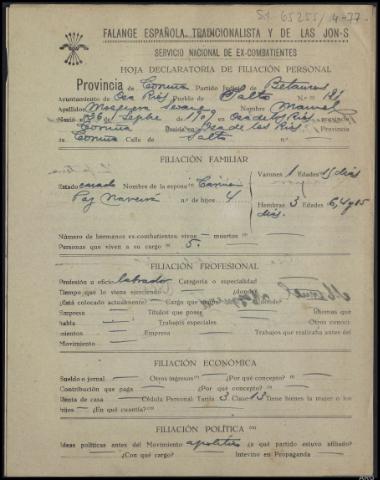 51-65255/14-77
FALANGE ESPAÑOLA TRADICIONALISTA Y DE LAS JON-S
SERVICIO NACIONAL DE EX-COMBATIENTES
HOJA DECLARATORIA DE FILIACIÓN PERSONAL
Provincia de Coruña Partido Judicial de Betanzos
Ayuntamiento de Oza Ríos Pueblo de Salto N.º 121
Apellidos Mosquera Nombre Manuel
Nació 26 Sepbe de 190 en Oza de los Ríos Provincia
Coruña Reside en Oza de los Ríos
Coruña Calle de Salto
FILIACIÓN FAMILIAR
Varones 1 Edades 15 días
Estado casado Nombre de la esposa Carmen
Paz n.º de hijos 4 Hembras 3 Edades 6, 4 y 15
días.
Número de hermanos ex-combatientes: vivos — muertos —
Personas que viven a su cargo 5.
FILIACIÓN PROFESIONAL
Profesión u oficio labrador Categoría o especialidad
Tiempo que lo viene ejerciendo ¿Dónde?
¿Está colocado actualmente? Cargo que
Empresa Títulos que posee Idiomas que
habla Trabajos especiales Otros conoci-
mientos Empresa Trabajos que realizaba antes del
Movimiento
FILIACIÓN ECONÓMICA
Sueldo o jornal — Otros ingresos ¿Por qué concepto?
Contribución que paga ¿Por qué concepto?
Renta de casa Cédula Personal: Tarifa 3 Clase 13 Tiene bienes la mujer o los
hijos — ¿En qué cuantía?
FILIACIÓN POLÍTICA
Ideas políticas antes del Movimiento apolítico ¿a qué partido estuvo afiliado?
¿Con qué cargo? Intervino en Propaganda